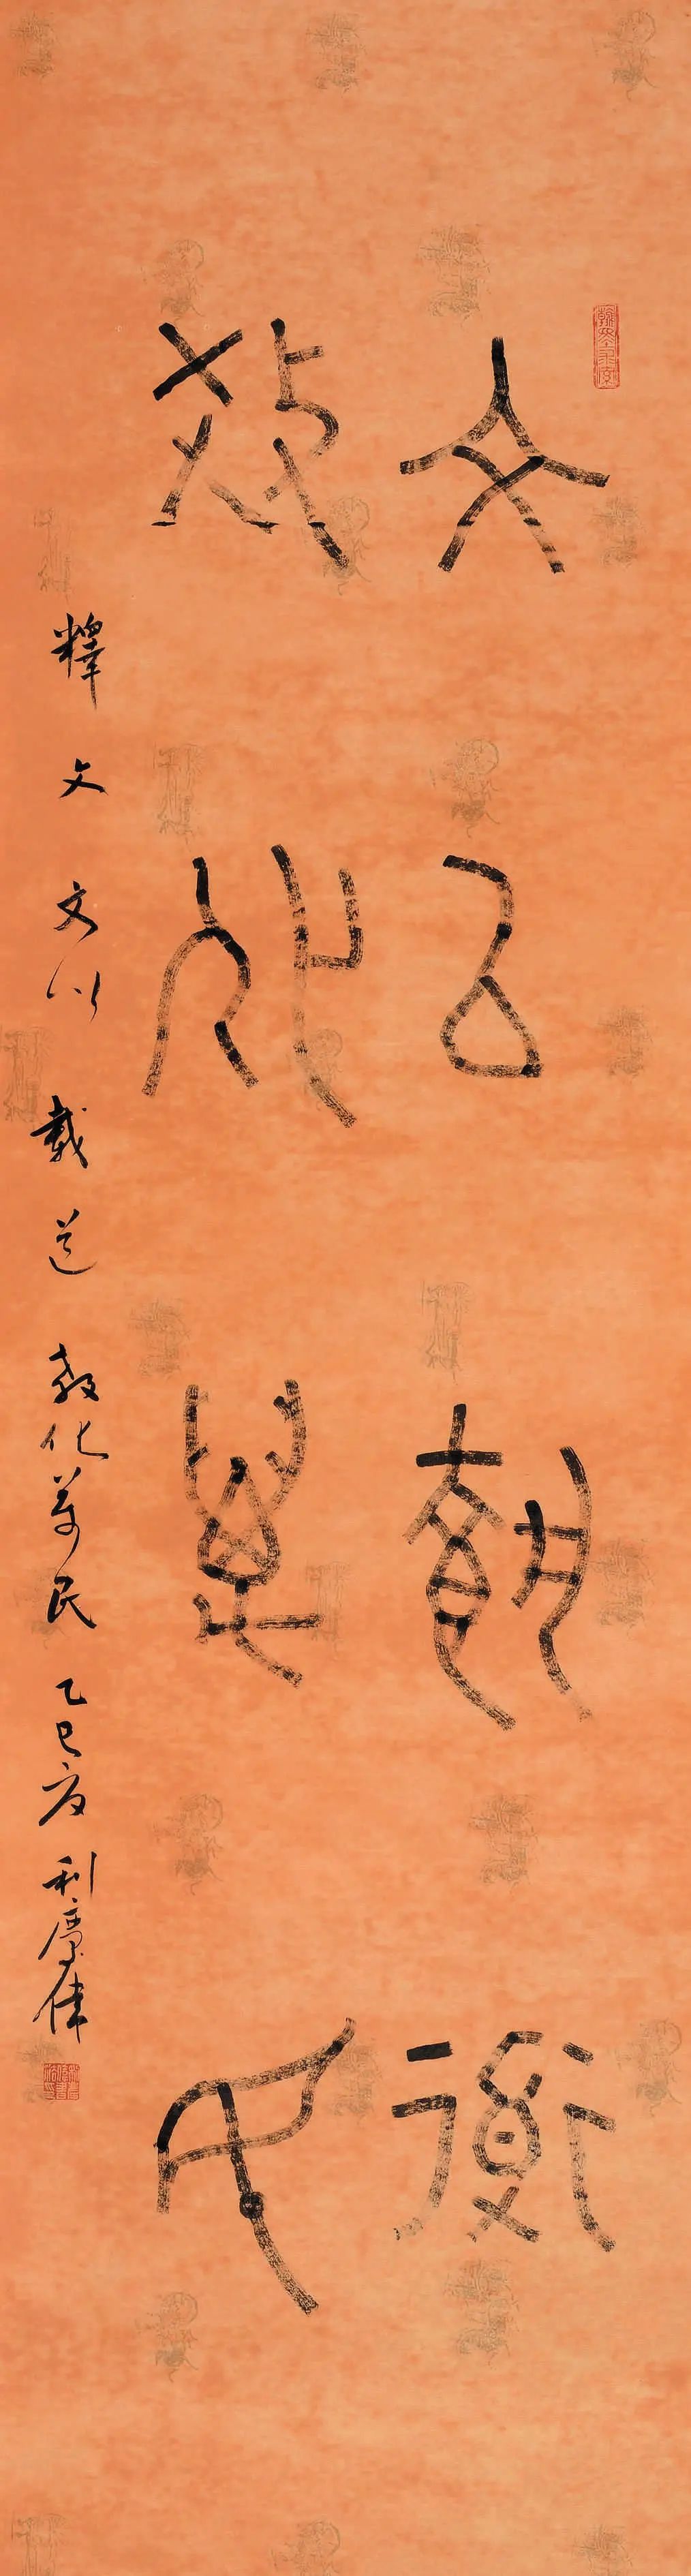 文以載道
教化萬民
釋文 文以載道 教化萬民 乙巳夏 利廣偉